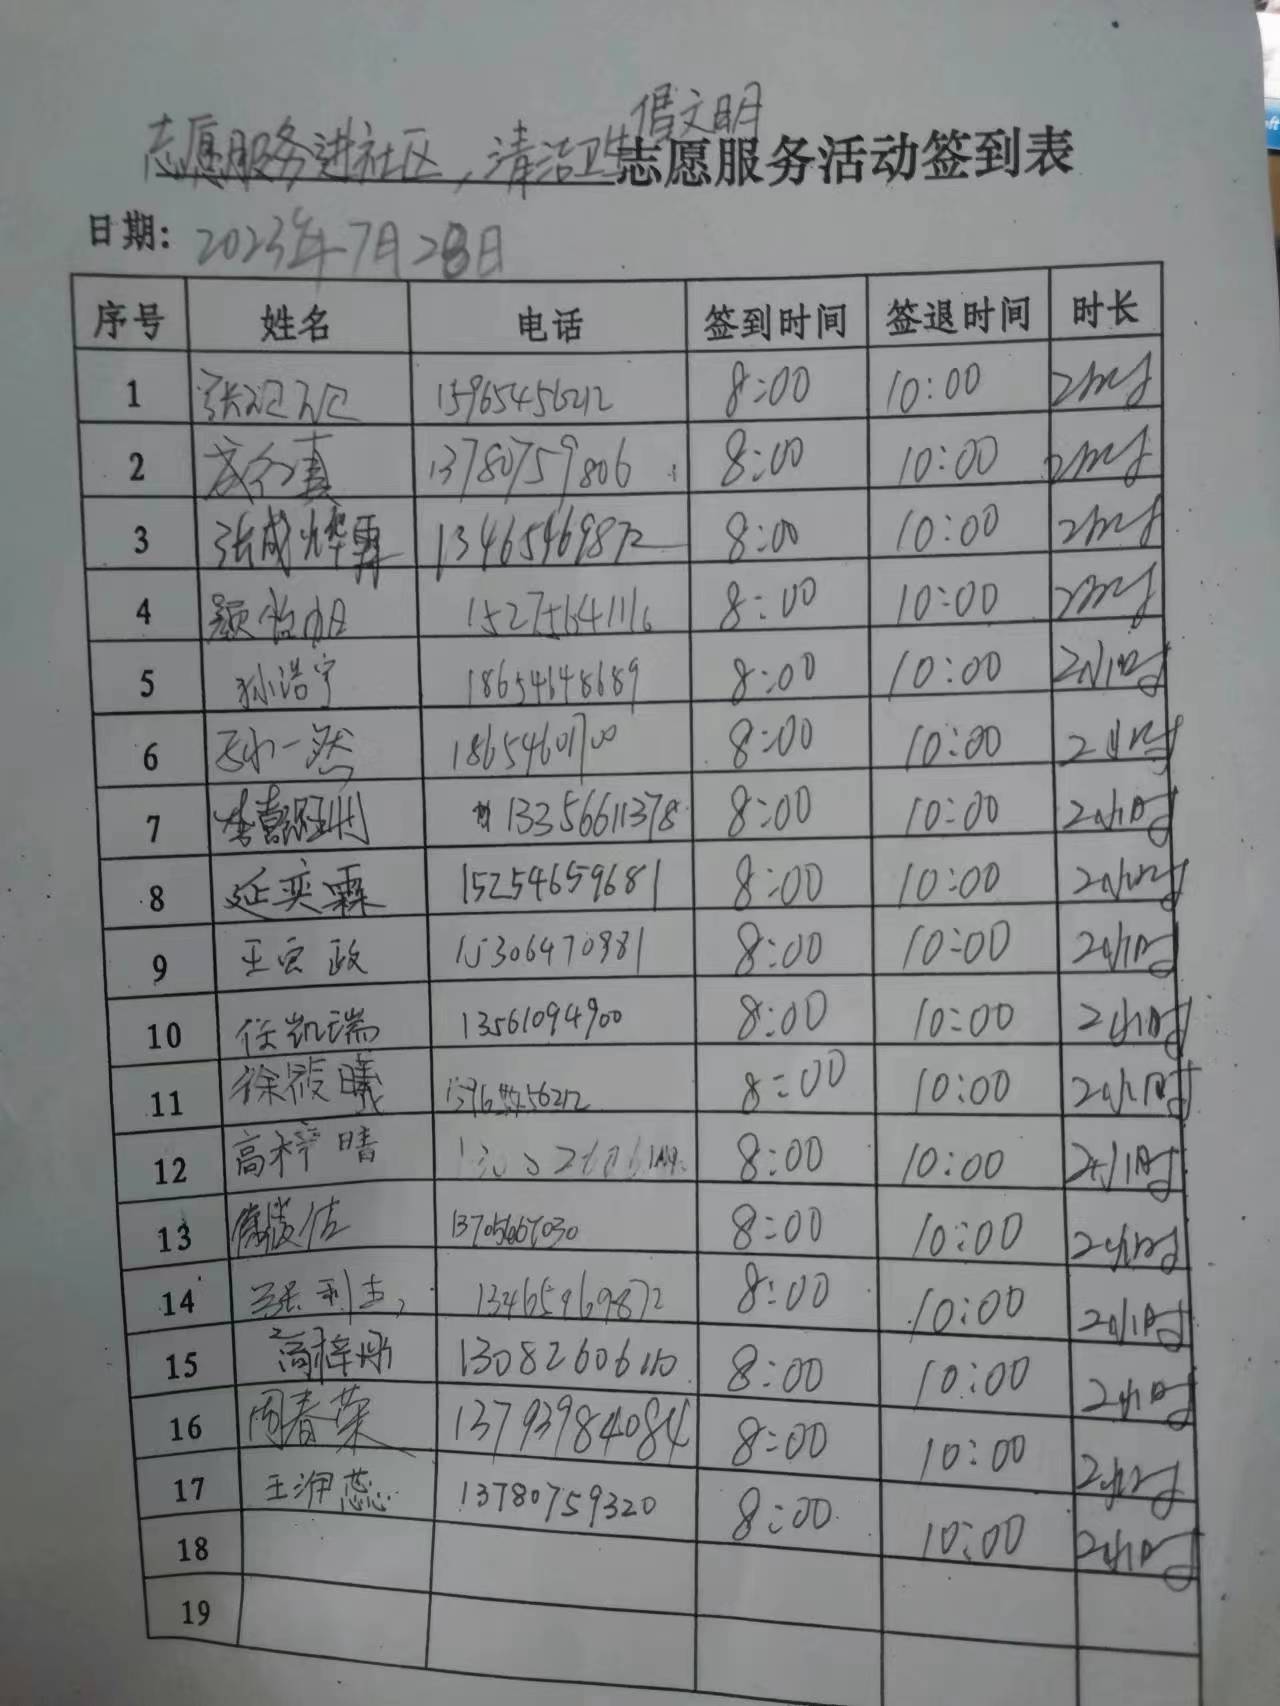 志愿服务进社区，清洁卫生倡文明
志愿服务活动签到表
日期：2023年7月28日
序号 姓名 电话 签到时间 签退时间 时长
1 15965456212 8:00 10:00 2小时
2 13780759806 8:00 10:00 2小时
3 张成烨霖 13465469872 8:00 10:00 2小时
4 15275641116 8:00 10:00 2小时
5 孙浩宇 18654648689 8:00 10:00 2小时
6 孙一然 18654601700 8:00 10:00 2小时
7 13356611378 8:00 10:00 2小时
8 延奕霖 15254659681 8:00 10:00 2小时
9 王宏政 15306470981 8:00 10:00 2小时
10 任凯瑞 13561094900 8:00 10:00 2小时
11 徐筱曦 8:00 10:00 2小时
12 高梓晴 8:00 10:00 2小时
13 8:00 10:00 2小时
14 13465969872 8:00 10:00 2小时
15 高梓彤 13082606110 8:00 10:00 2小时
16 周春荣 13793984084 8:00 10:00 2小时
17 王洢蕊 13780759320 8:00 10:00 2小时
18
19